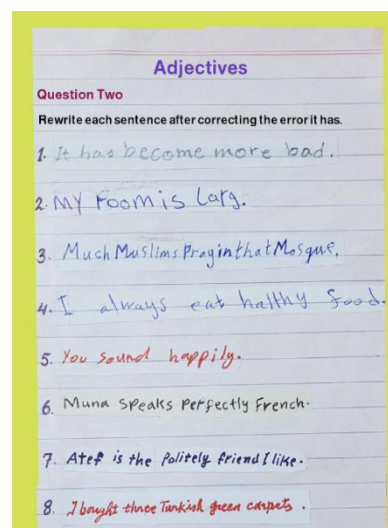 Adjectives
Question Two
Rewrite each sentence after correcting the error it has.
1. It has become more bad.
2. My room is larg.
3. Much Muslims Pray in that Mosque.
4. I always eat halthy food.
5. You sound happily.
6. Muna speaks perfectly French.
7. Atef is the politely friend I like.
8. I bought three Turkish green carpets.